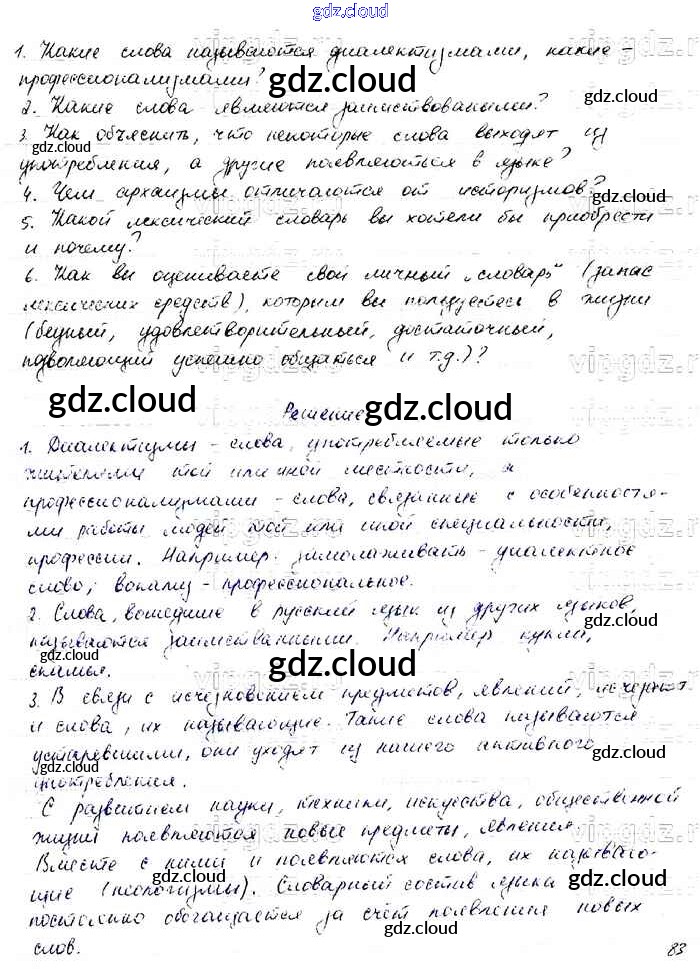 gdz.cloud
1. Какие слова называются диалектизмами, какие –
профессионализмами?
gdz.cloud
2. Какие слова являются заимствованными?
gdz.cloud
3. Как объяснить, что некоторые слова выходят из
употребления, а другие появляються в языке?
gdz.cloud
4. Чем архаизмы отличаются от историзмов?
5. Какой лексический словарь вы хотели бы приобрести
и почему?
6. Как вы оцениваете свой личный „словарь" (запас
лексических средств), которым вы пользуетесь в жизни
(бедный, удовлетворительный, достаточный,
позволяющий успешно общаться и т.д.)?
vingdz.ru
gdz.cloud
Решение
gdz.cloud
1. Диалектизмы – слова, употребляемые только
жителями той или иной местности, а
профессионализмами – слова, связанные с особенностя-
ми работы людей той или иной специальности,
профессии. Например: замолаживать – диалектное
слово; вокализ – профессиональное.
2. Слова, вошедшие в русский язык из других языков,
называются заимствованными. Например
скамья.
gdz.cloud
3. В связи с исчезновением предметов, явлений, исчезают
и слова, их называющие. Такие слова называются
устаревшими, они уходят из нашего активного
употребления.
gdz.cloud
С развитием науки, техники, искусства, общественной
жизни появляются новые предметы, явления.
Вместе с ними и появляются слова, их называю-
щие (неологизмы). Словарный состав языка
gdz.cloud
постоянно обогащается за счёт появления новых
слов.
83